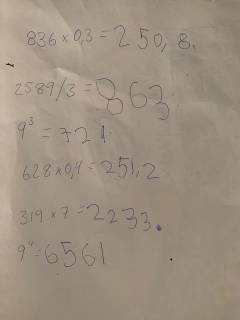 836 x 0,3 = 250, 8.
2589/3 = 863
9³ = 721
628 x 0,4 = 251,2
319 x 7 = 2233.
9⁴ = 6561